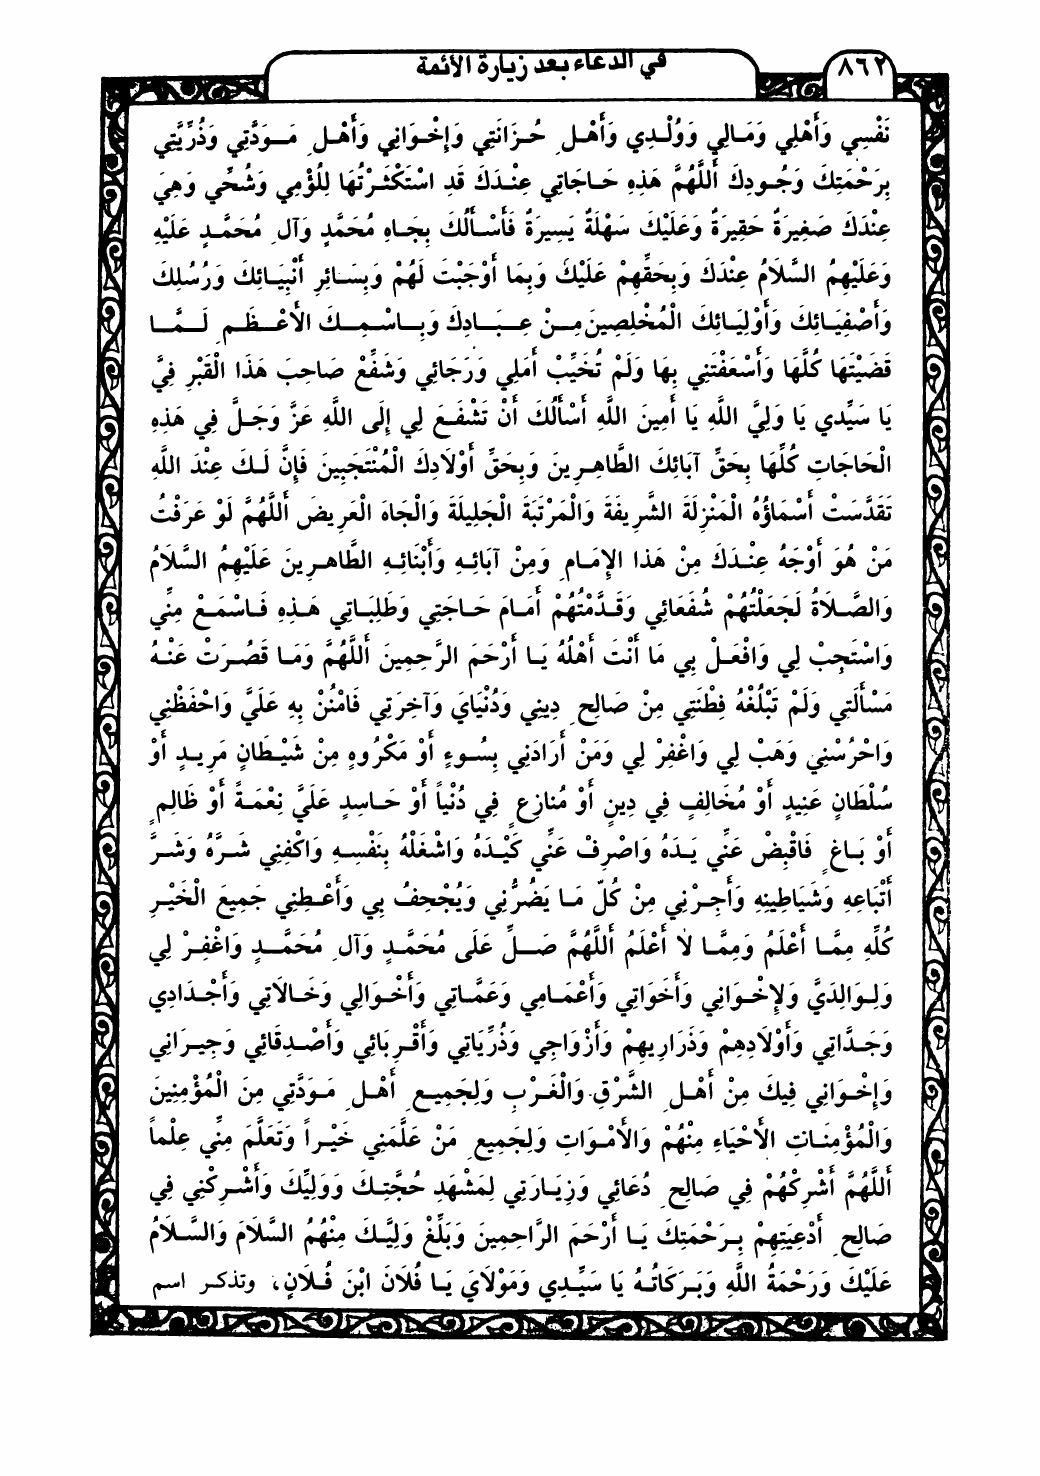 ٨٦٢
في الدعاء بعد زيارة الأئمة
نَفْسِي وَأَهْلِي وَمَالِي وَوُلْدِي وَأَهْلِ حُزَانَتِي وَإِخْوَانِي وَأَهْلِ مَوَدَّتِي وَذُرِّيَّتِي
بِرَحْمَتِكَ وَجُودِكَ أَللَّهُمَّ هَذِهِ حَاجَاتِي عِنْدَكَ قَدِ اسْتَكْثَرْتُهَا لِلُؤْمِي وَشُحِّي وَهِيَ
عِنْدَكَ صَغِيرَةٌ حَقِيرَةٌ وَعَلَيْكَ سَهْلَةٌ يَسِيرَةٌ فَأَسْأَلُكَ بِجَاهِ مُحَمَّدٍ وَآلِ مُحَمَّدٍ عَلَيْهِ
وَعَلَيْهِمُ السَّلَامُ عِنْدَكَ وَبِحَقِّهِمْ عَلَيْكَ وَبِمَا أَوْجَبْتَ لَهُمْ وَبِسَائِرِ أَنْبِيَائِكَ وَرُسُلِكَ
وَأَصْفِيَائِكَ وَأَوْلِيَائِكَ الْمُخْلِصِينَ مِنْ عِبَادِكَ وَبِاسْمِكَ الأَعْظَمِ لَمَّا
قَضَيْتَهَا كُلَّهَا وَأَسْعَفْتَنِي بِهَا وَلَمْ تُخَيِّبْ أَمَلِي وَرَجَائِي وَشَفِّعْ صَاحِبَ هَذَا الْقَبْرِ فِيَّ
يَا سَيِّدِي يَا وَلِيَّ اللَّهِ يَا أَمِينَ اللَّهِ أَسْأَلُكَ أَنْ تَشْفَعَ لِي إِلَى اللَّهِ عَزَّ وَجَلَّ فِي هَذِهِ
الْحَاجَاتِ كُلِّهَا بِحَقِّ آبَائِكَ الطَّاهِرِينَ وَبِحَقِّ أَوْلَادِكَ الْمُنْتَجَبِينَ فَإِنَّ لَكَ عِنْدَ اللَّهِ
تَقَدَّسَتْ أَسْمَاؤُهُ الْمَنْزِلَةَ الشَّرِيفَةَ وَالْمَرْتَبَةَ الْجَلِيلَةَ وَالْجَاهَ الْعَرِيضَ أَللَّهُمَّ لَوْ عَرَفْتُ
مَنْ هُوَ أَوْجَهُ عِنْدَكَ مِنْ هَذَا الإِمَامِ وَمِنْ آبَائِهِ وَأَبْنَائِهِ الطَّاهِرِينَ عَلَيْهِمُ السَّلَامُ
وَالصَّلَاةُ لَجَعَلْتُهُمْ شُفَعَائِي وَقَدَّمْتُهُمْ أَمَامَ حَاجَتِي وَطَلِبَاتِي هَذِهِ فَاسْمَعْ مِنِّي
وَاسْتَجِبْ لِي وَافْعَلْ بِي مَا أَنْتَ أَهْلُهُ يَا أَرْحَمَ الرَّحِمِينَ أَللَّهُمَّ وَمَا قَصُرَتْ عَنْهُ
مَسْأَلَتِي وَلَمْ تَبْلُغْهُ فِطْنَتِي مِنْ صَالِحِ دِينِي وَدُنْيَايَ وَآخِرَتِي فَامْنُنْ بِهِ عَلَيَّ وَاحْفَظْنِي
وَاحْرُسْنِي وَهَبْ لِي وَاغْفِرْ لِي وَمَنْ أَرَادَنِي بِسُوءٍ أَوْ مَكْرُوهٍ مِنْ شَيْطَانٍ مَرِيدٍ أَوْ
سُلْطَانٍ عَنِيدٍ أَوْ مُخَالِفٍ فِي دِينٍ أَوْ مُنَازِعٍ فِي دُنْيَاً أَوْ حَاسِدٍ عَلَيَّ نِعْمَةً أَوْ ظَالِمٍ
أَوْ بَاغٍ فَاقْبِضْ عَنِّي يَدَهُ وَاصْرِفْ عَنِّي كَيْدَهُ وَاشْغَلْهُ بِنَفْسِهِ وَاكْفِنِي شَرَّهُ وَشَرَّ
أَتْبَاعِهِ وَشَيَاطِينِهِ وَأَجِرْنِي مِنْ كُلِّ مَا يَضُرُّنِي وَيُجْحِفُ بِي وَأَعْطِنِي جَمِيعَ الْخَيْرِ
كُلِّهِ مِمَّا أَعْلَمُ وَمِمَّا لَا أَعْلَمُ أَللَّهُمَّ صَلِّ عَلَى مُحَمَّدٍ وَآلِ مُحَمَّدٍ وَاغْفِرْ لِي
وَلِوَالِدَيَّ وَلِإِخْوَانِي وَأَخَوَاتِي وَأَعْمَامِي وَعَمَّاتِي وَأَخْوَالِي وَخَالَاتِي وَأَجْدَادِي
وَجَدَّاتِي وَأَوْلَادِهِمْ وَذَرَارِيهِمْ وَأَزْوَاجِي وَذُرِّيَاتِي وَأَقْرِبَائِي وَأَصْدِقَائِي وَجِيرَانِي
وَإِخْوَانِي فِيكَ مِنْ أَهْلِ الشَّرْقِ وَالْغَرْبِ وَلِجَمِيعِ أَهْلِ مَوَدَّتِي مِنَ الْمُؤْمِنِينَ
وَالْمُؤْمِنَاتِ الأَحْيَاءِ مِنْهُمْ وَالأَمْوَاتِ وَلِجَمِيعِ مَنْ عَلَّمَنِي خَيْراً وَتَعَلَّمَ مِنِّي عِلْماً
أَللَّهُمَّ أَشْرِكْهُمْ فِي صَالِحِ دُعَائِي وَزِيَارَتِي لِمَشْهَدِ حُجَّتِكَ وَوَلِيِّكَ وَأَشْرِكْنِي فِي
صَالِحِ أَدْعِيَتِهِمْ بِرَحْمَتِكَ يَا أَرْحَمَ الرَّاحِمِينَ وَبَلِّغْ وَلِيَّكَ مِنْهُمُ السَّلَامَ وَالسَّلَامُ
عَلَيْكَ وَرَحْمَةُ اللَّهِ وَبَرَكَاتُهُ يَا سَيِّدِي وَمَوْلَايَ يَا فُلَانَ ابْنَ فُلَانٍ، وتذكر اسم